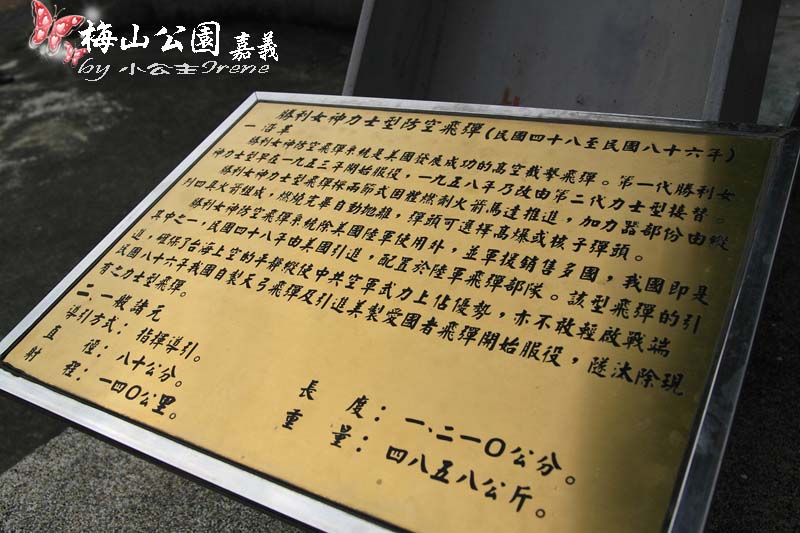 梅山公園 嘉義
by 小公主Irene
勝利女神力士型防空飛彈(民國四十八至民國八十六年)
一 沿革
勝利女神防空飛彈系統是美國發展成功的高空截擊飛彈。第一代勝利女
神力士型早在一九五三年開始服役,一九五八年乃改由第二代力士型接替。
勝利女神力士型飛彈採兩節式固體燃料火箭馬達推進,加力器部份由縱
列四單火箭組成,燃燒完畢自動拋離,彈頭可選擇高爆或核子彈頭。
勝利女神防空飛彈系統除美國陸軍使用外,並軍援銷售多國,我國即是
其中之一,民國四十八年由美國引進,配置於陸軍飛彈部隊。該型飛彈的引
進,確保了台海上空的平靜縱使中共空軍武力上佔優勢,亦不敢輕啟戰端
民國八十六年我國自製天弓飛彈及引進美製愛國者飛彈開始服役,隧汰除現
有之力士型飛彈。
二、一般諸元
導引方式:指揮導引。
直 徑:八十公分。 長 度:一、二一〇公分。
射 程:一四〇公里。 重 量:四八五八公斤。